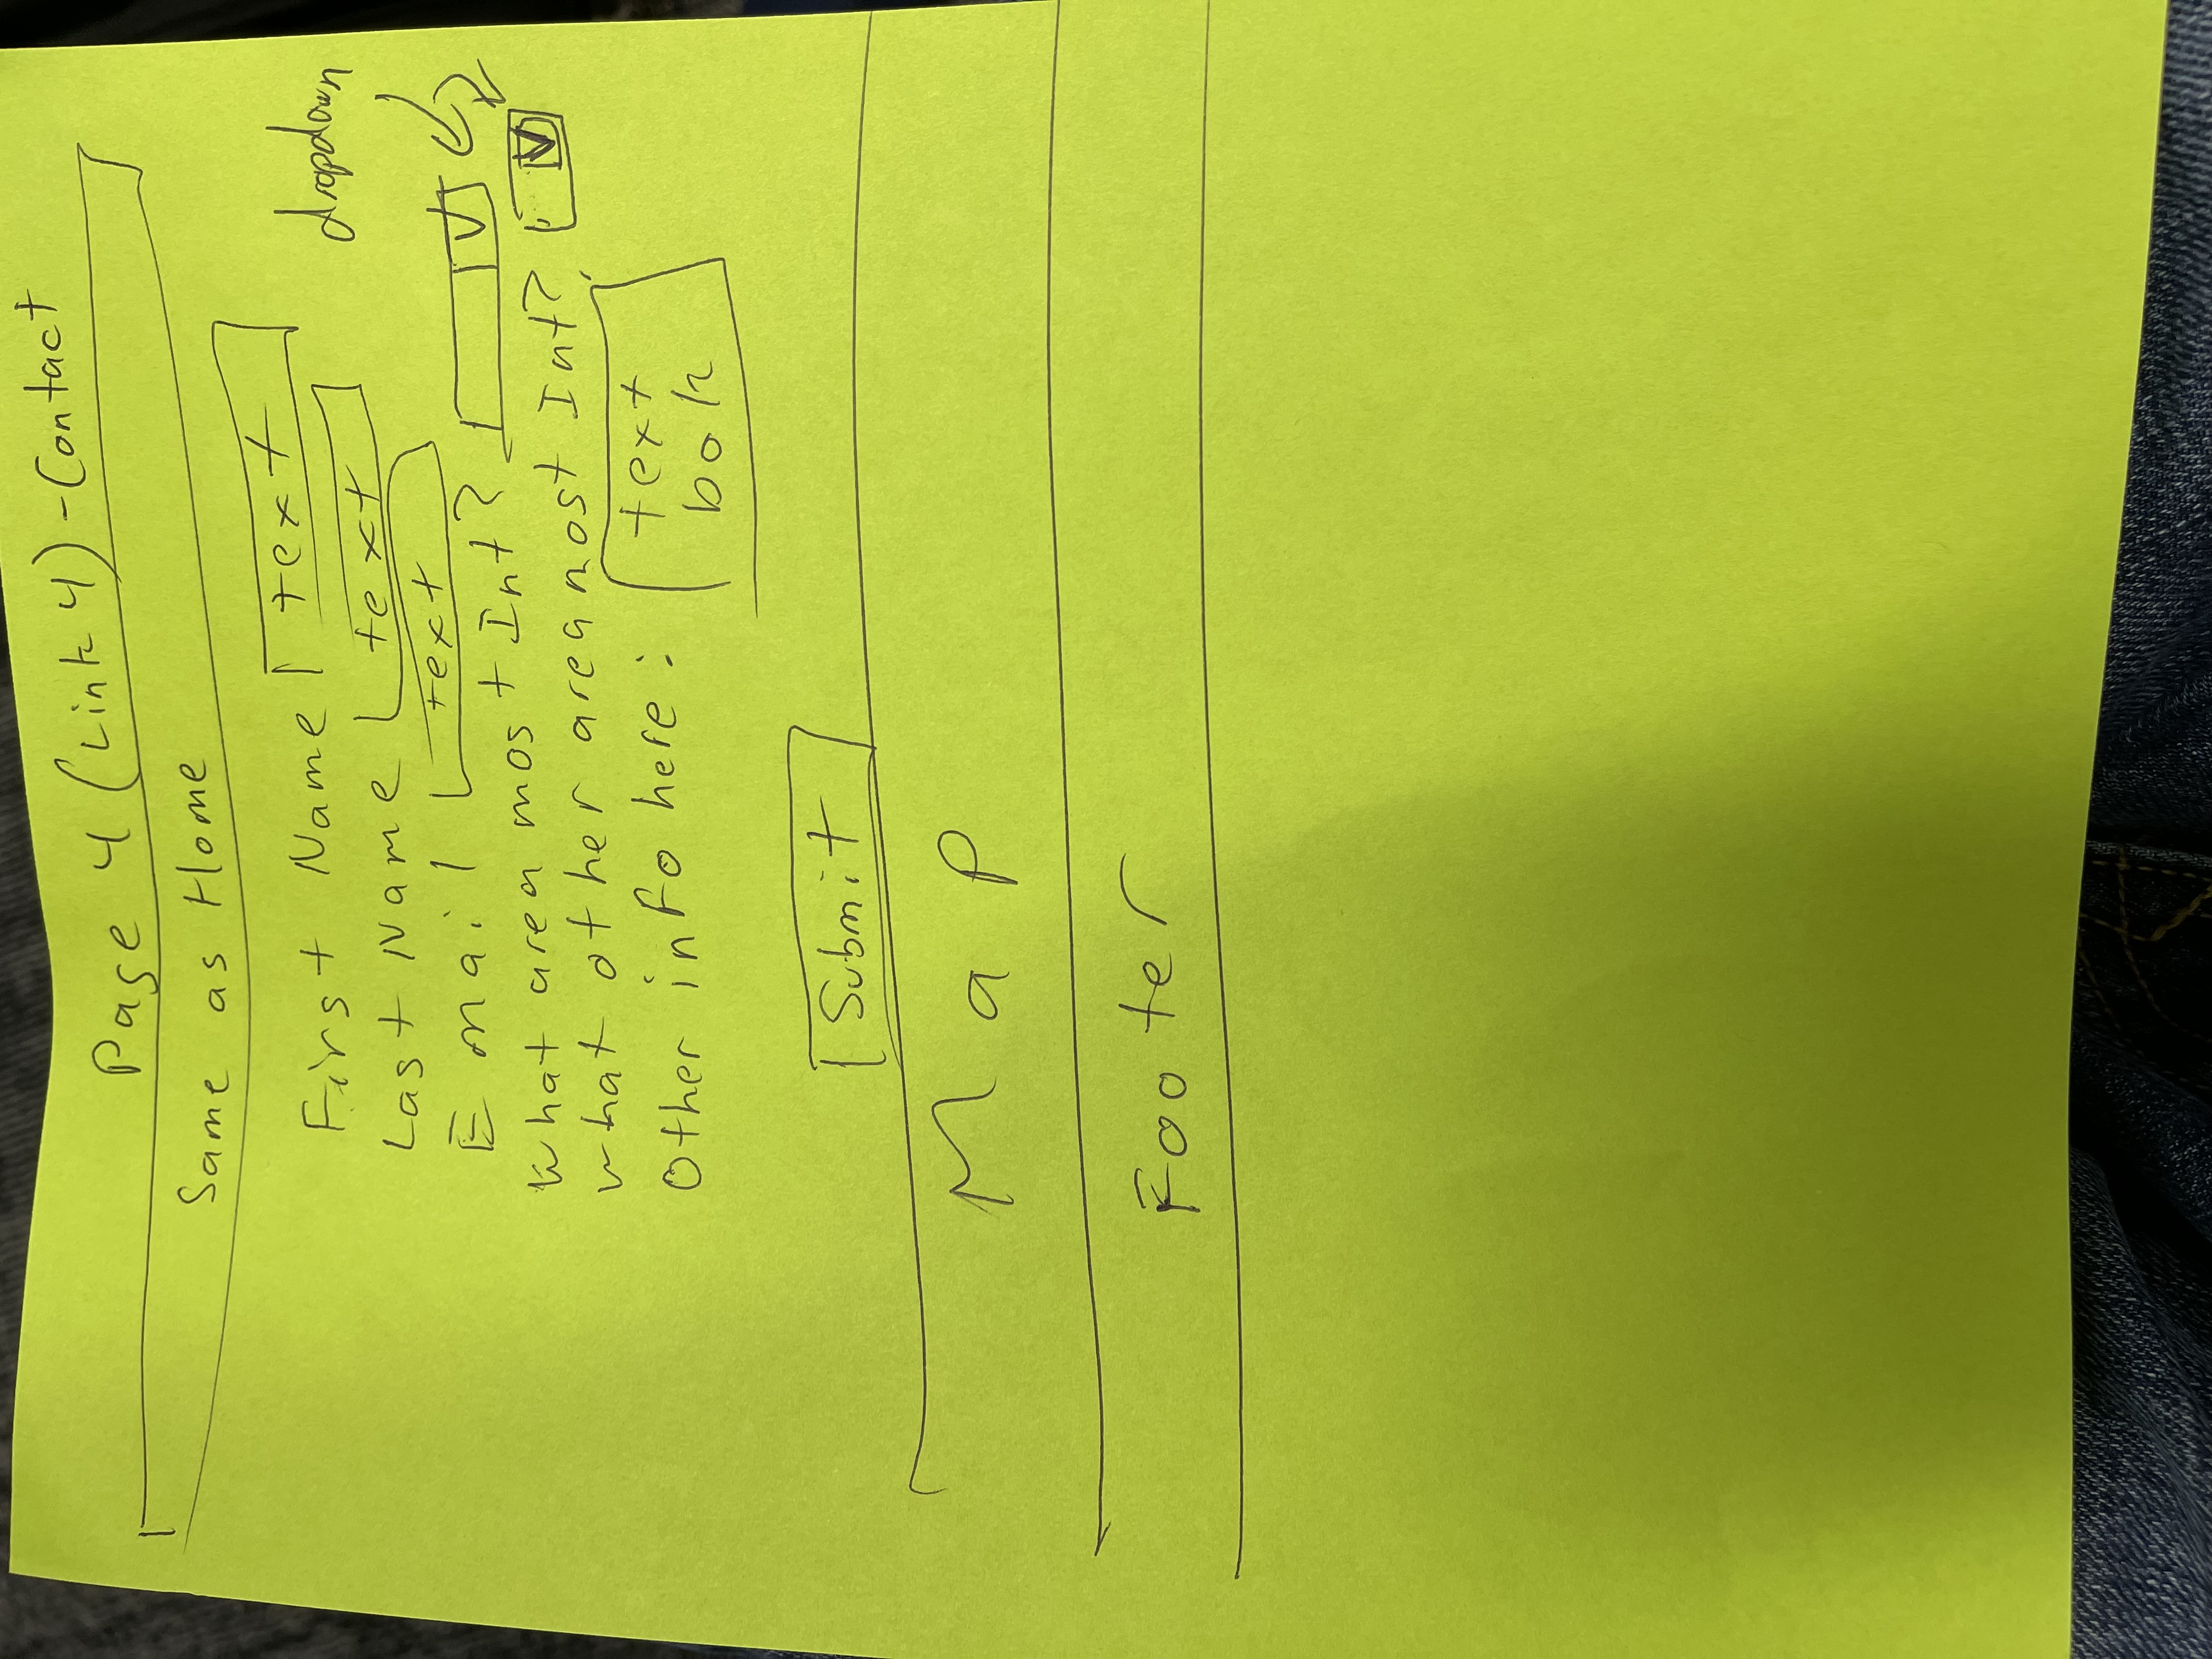 Page 4 (Link 4) - Contact
Same as Home
First Name text
dropdown
Last Name text
Email text
What area most Int?
What other area most Int?
Other info here: text
box
Submit
Map
Footer